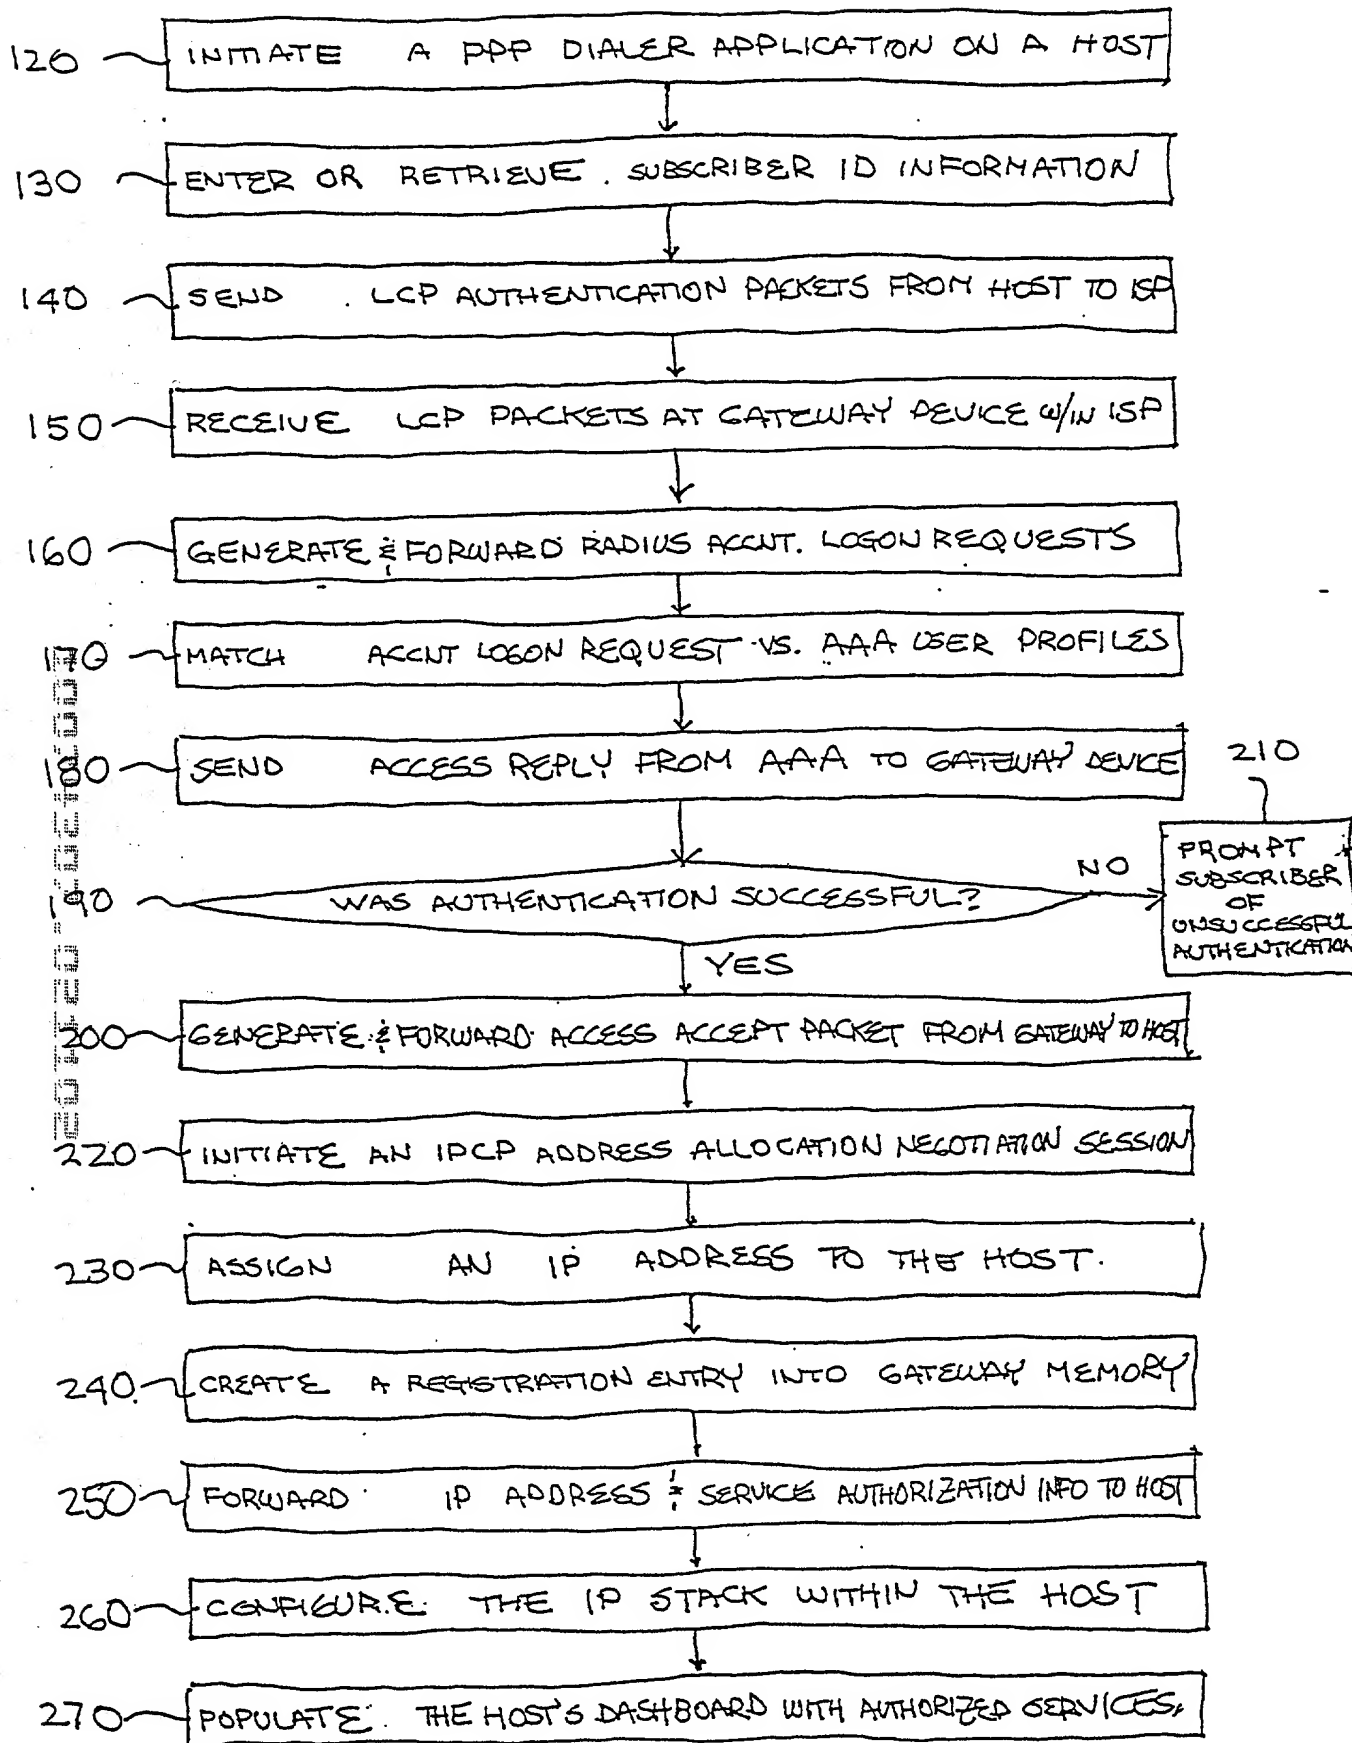 120 INITIATE A PPP DIALER APPLICATION ON A HOST
130 ENTER OR RETRIEVE SUBSCRIBER ID INFORMATION
140 SEND LCP AUTHENTICATION PACKETS FROM HOST TO ISP
150 RECEIVE LCP PACKETS AT GATEWAY DEVICE W/IN ISP
160 GENERATE & FORWARD RADIUS ACCNT. LOGON REQUESTS
170 MATCH ACCNT LOGON REQUEST VS. AAA USER PROFILES
180 SEND ACCESS REPLY FROM AAA TO GATEWAY DEVICE
210
190 WAS AUTHENTICATION SUCCESSFUL?
NO
PROMPT
SUBSCRIBER
OF
UNSUCCESSFUL
AUTHENTICATION
YES
200 GENERATE & FORWARD ACCESS ACCEPT PACKET FROM GATEWAY TO HOST
220 INITIATE AN IPCP ADDRESS ALLOCATION NEGOTIATION SESSION
230 ASSIGN AN IP ADDRESS TO THE HOST.
240 CREATE A REGISTRATION ENTRY INTO GATEWAY MEMORY
250 FORWARD IP ADDRESS & SERVICE AUTHORIZATION INFO TO HOST
260 CONFIGURE THE IP STACK WITHIN THE HOST
270 POPULATE THE HOST'S DASHBOARD WITH AUTHORIZED SERVICES.